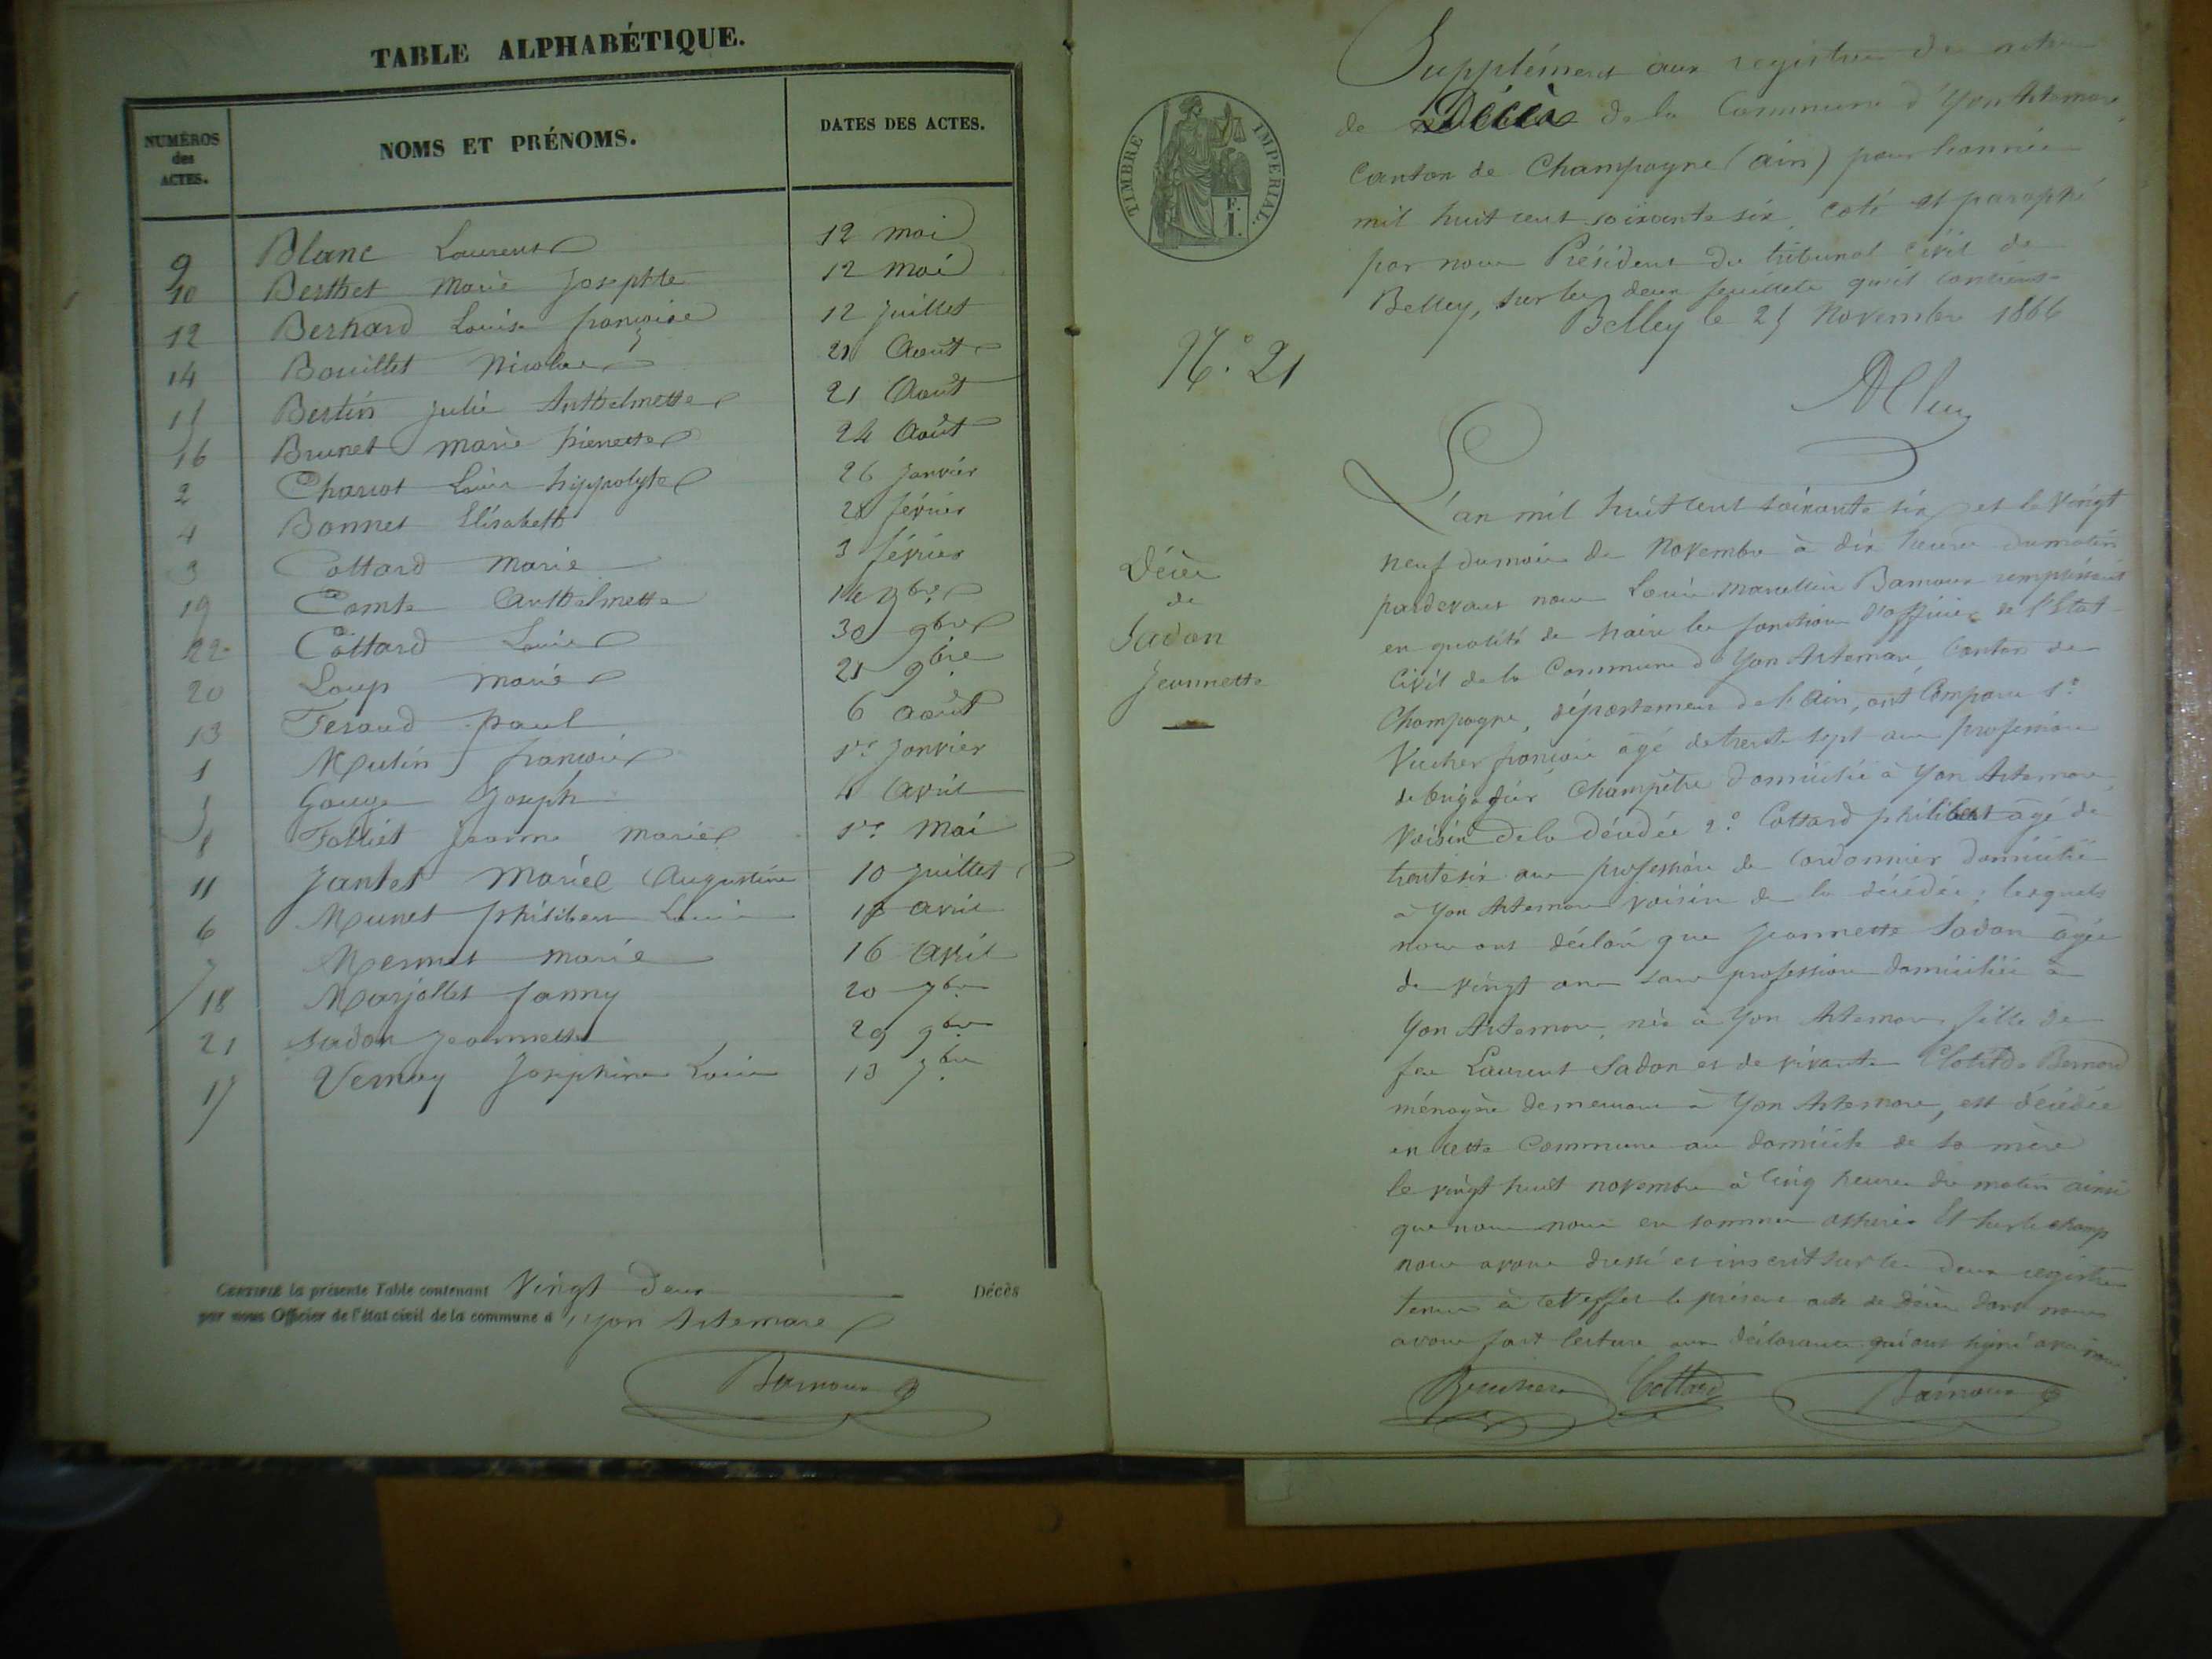 TABLE ALPHABÉTIQUE.
NUMÉROS des ACTES.
NOMS ET PRÉNOMS.
DATES DES ACTES.
9 Blanc Laurent 12 mai
10 Berthet Marie Josephte 12 mai
12 Bernard Louise françoise 12 Juillet
14 Bouillet Nicolas 21 Août
15 Bertin Julie Anthelmette 21 Août
16 Brunet Marie pierrette 24 Août
2 Charvot Louis hippolyte 26 Janvier
4 Bonnet Elisabeth 28 février
3 Cottard Marie 3 février
19 Comte Anthelmette 14 9bre
22 Cottard Louis 30 9bre
20 Loup Marie 21 9bre
13 Feraud paul 6 août
1 Mutin françois 1er Janvier
5 Gouge Joseph 4 avril
8 Folliet Jeanne Marie 1er Mai
11 Jantet Marie Augustine 10 Juillet
6 Munet philibert Louis avril
7 Mermet Marie 16 avril
18 Marjollet fanny 20 7bre
21 Sadon Jeannette 29 9bre
17 Vernay Josephine Louise 13 7bre
CERTIFIÉ la présente Table contenant Vingt deux Décès
par nous Officier de l'état civil de la commune d'Yon Artemare
Barnoux
TIMBRE IMPÉRIAL.
Supplément aux registres de
de Décès de la Commune d'Yon Artemare
Canton de Champagne (ain) pour l'année
mil huit cent soixante six, coté et paraphé
par nous Président du tribunal civil de
Belley, sur les deux feuillets qu'il contient
Belley le 25 Novembre 1866
N.° 21
Décès
de
Sadon
Jeannette
L'an mil huit cent soixante six et le vingt
neuf du mois de Novembre à dix heures du matin
pardevant nous Louis Marcellin Barnoux remplissant
en qualité de Maire les fonctions d'officier de l'Etat
Civil de la Commune d'Yon Artemare, Canton de
Champagne, département de l'Ain, ont Comparu 1.°
françois âgé de trente sept ans profession
de brigadier Champêtre domicilié à Yon Artemare
voisin de la décédée 2.° Cottard philibert âgé de
trente six ans profession de Cordonnier domicilié
à Yon Artemare voisin de la décédée; lesquels
nous ont déclaré que Jeannette Sadon âgée
de vingt ans sans profession domiciliée à
Yon Artemare, née à Yon Artemare fille de
feu Laurent Sadon et de vivante Clotilde Bernard
ménagère demeurant à Yon Artemare, est décédée
en cette Commune au domicile de sa mère
le vingt huit novembre à Cinq heures du matin ainsi
que nous nous en sommes assurés Et sur le champ
nous avons dressé et inscrit sur les deux registres
tenus à cet effet le présent acte de décès dont nous
avons fait lecture aux déclarants qui ont signé avec nous.
Cottard Barnoux